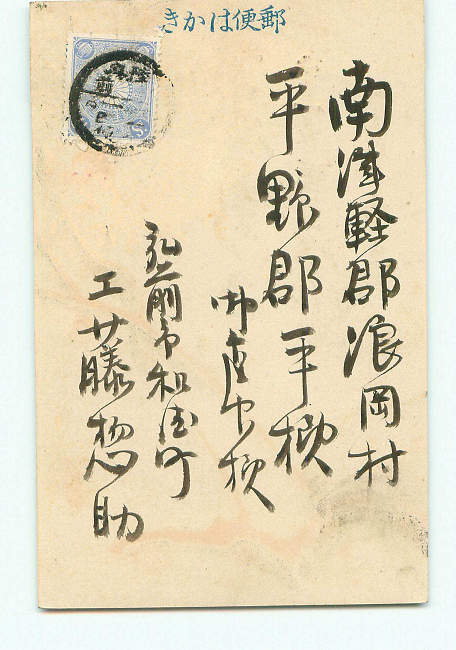 郵便はかき
南津軽郡浪岡村
平野郡平様
弘前市和徳町
工藤惣助